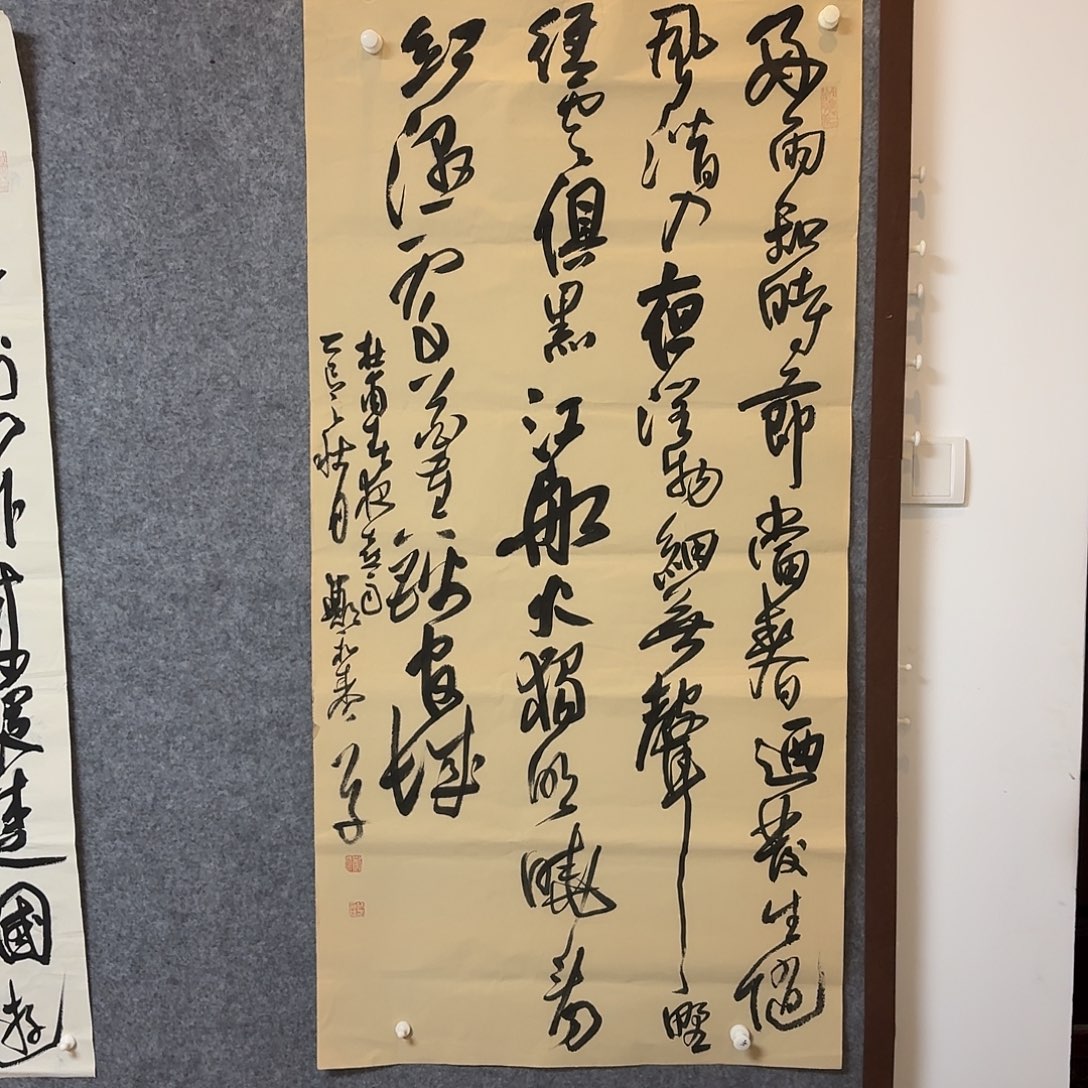 好雨知時節當春迺發生隨
風潛入夜潤物細無聲野
徑雲俱黑江船火獨明曉看
紅濕處花重錦官城
杜甫春夜喜雨
乙巳之秋月鄭
國游